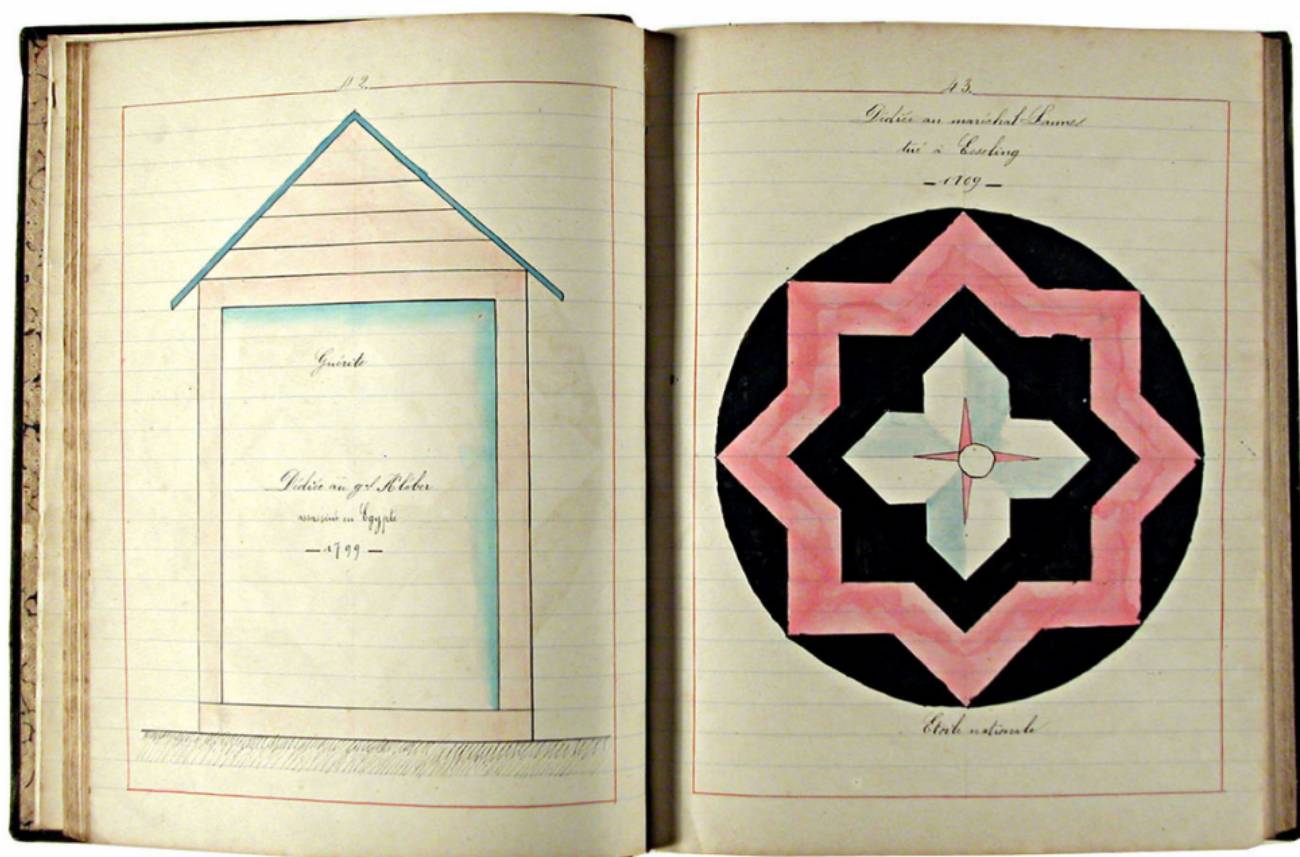 42.
Guérite
Dédiée au gal Kléber
assassiné en Egypte
— 1799 —
43.
Dédiée au maréchal Lannes
tué à Essling
— 1809 —
Etoile nationale